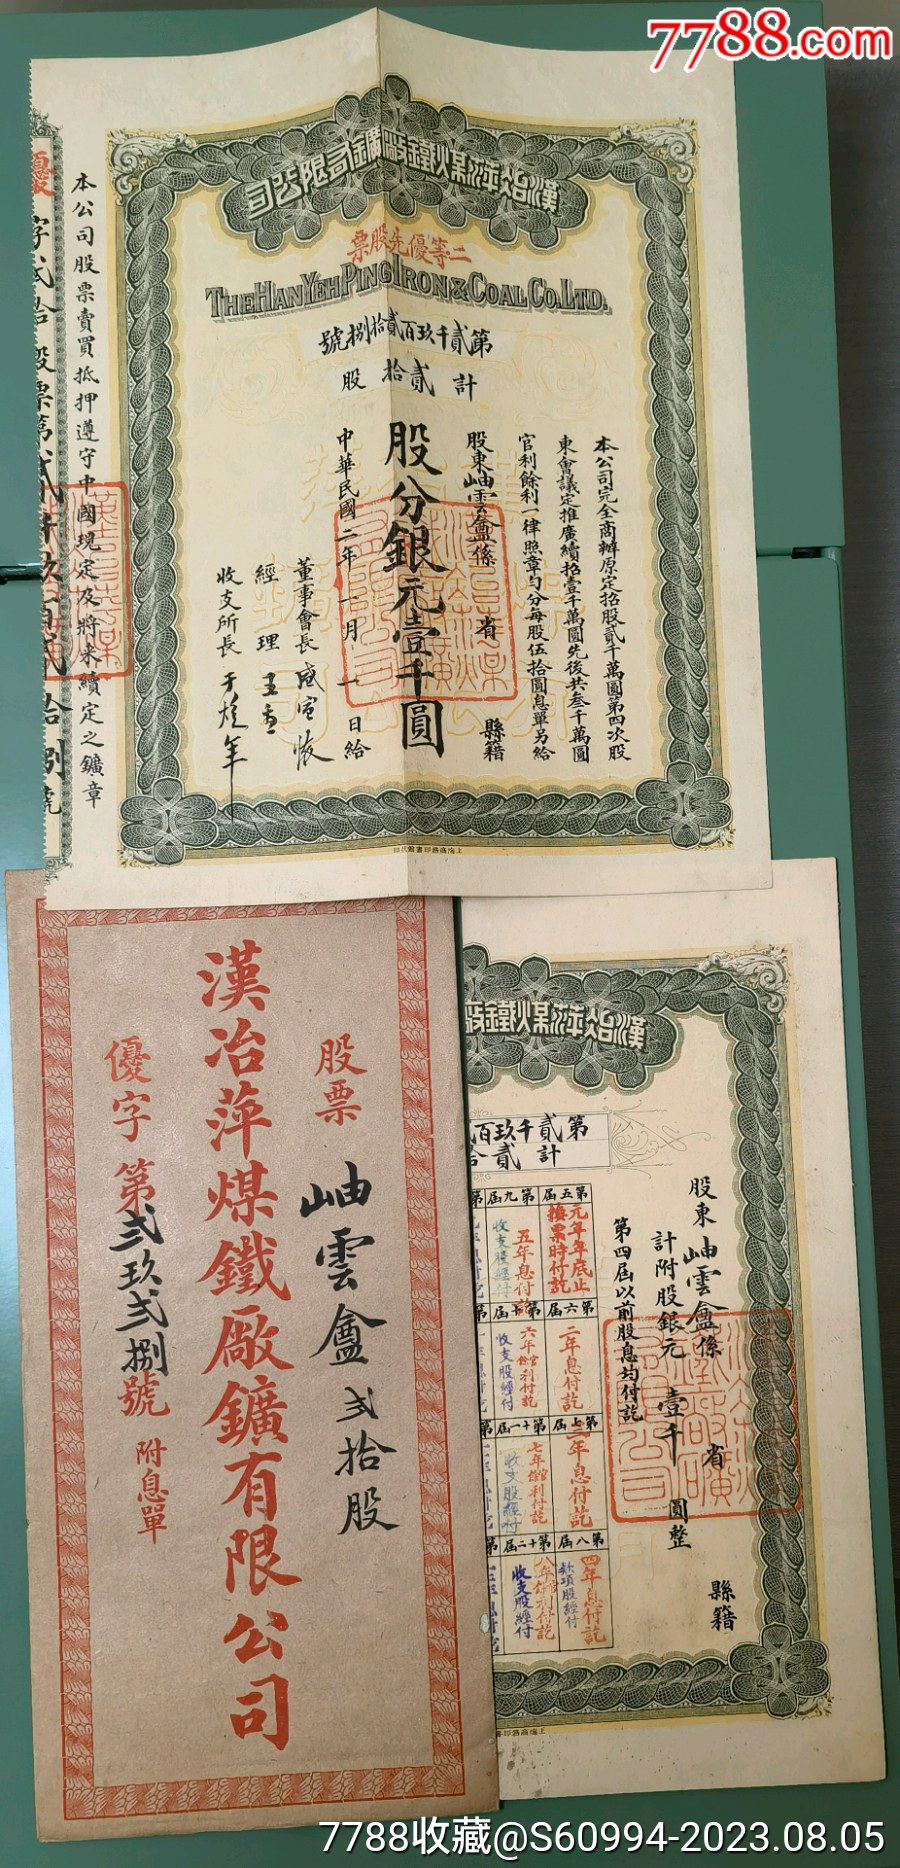 7788.com
漢冶萍煤鐵廠鑛有限公司
二等優先股票
THE HAN YEH PING IRON & COAL CO. LTD.
第貳千玖百貳拾捌號
計貳拾股
本公司完全商辦原定招股貳千萬圓第四次股
東會議定推廣續招壹千萬圓先後共叁千萬圓
官利餘利一律照章勻分每股伍拾圓息單另給
股東岫雲盦係 省 縣籍
股分銀元壹千圓
中華民國二年一月一日給
董事會長盛宣懷
經理
收支所長于焌年
本公司股票賣買抵押遵守中國現定及將來續定之鑛章
上海商務印書館代印
股票 岫雲盦 弍拾股
漢冶萍煤鐵廠鑛有限公司
優字第弍玖弍捌號 附息單
漢冶萍煤鐵廠
第貳千玖百
計貳拾
股東岫雲盦係 省 縣籍
計附股銀元壹千圓整
第四屆以前股息均付訖
第五屆 第九屆
元年年底止換票時付訖
五年息付訖
收支股經付
第六屆 第十屆
二年息付訖
六年官利付訖
收支股經付
第七屆 第十一屆
三年息付訖
七年官利付訖
收支股經付
第八屆 第十二屆
四年息付訖
款項股經付
收支股經付
7788收藏@S60994-2023.08.05